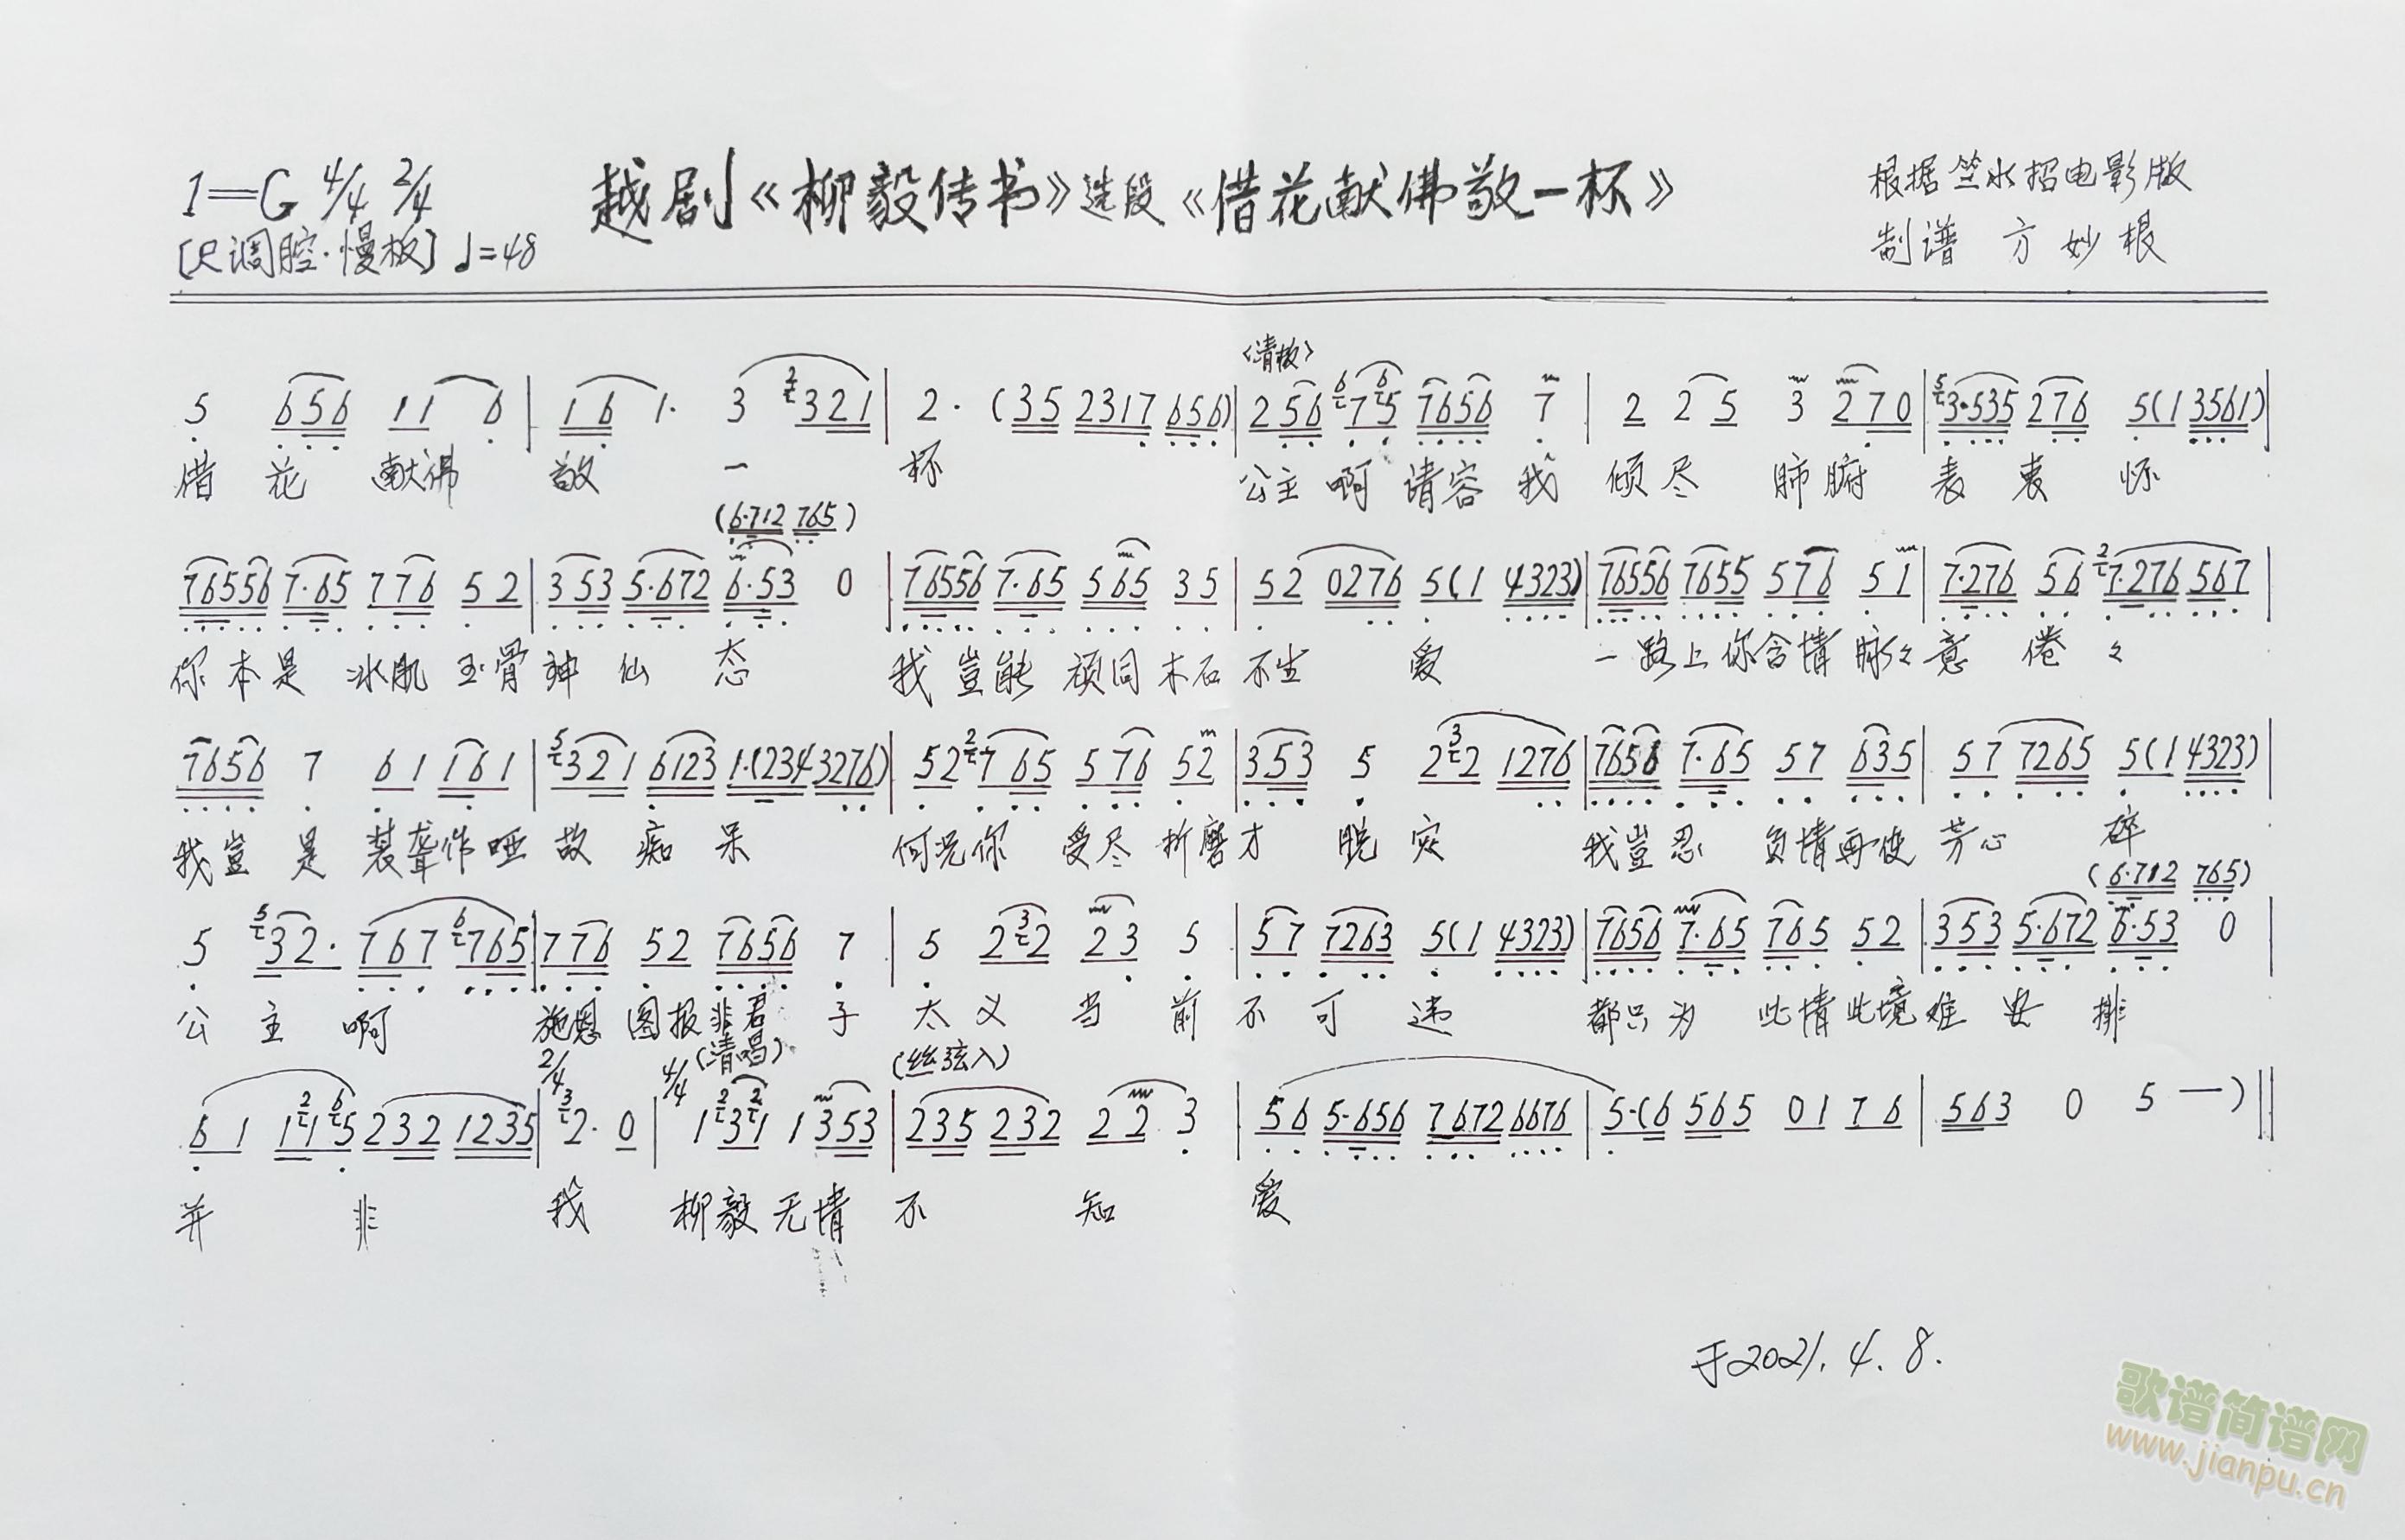 1=G 4/4 2/4 越剧《柳毅传书》选段《借花献佛敬一杯》 根据竺水招电影版
[尺调腔·慢板] ♩=48 制谱 方妙根
<清板>
5 656 11 6 | 16 1· 3 2321 | 2· (35 2317 656) | 256 6765 7656 7 | 2 25 3 270 | 53·535 276 5(1 3561) |
借 花 献佛 敬 一 杯 公主 啊 请容 我 倾尽 肺腑 表衷 怀
(6·712 765)
76556 7·65 776 52 | 353 5·672 6·53 0 | 76556 7·65 565 35 | 52 0276 5(1 4323) | 76556 7655 576 51 | 7·276 56 27·276 567 |
你本是 冰肌 玉骨 神仙 态 我岂能 顽同木石 不生 爱 一路上你含情脉々意 倦 々
7656 7 61 161 | 5321 6123 1·(234 3276) | 52 2765 576 52 | 353 5 232 1276 | 7656 7·65 57 635 | 57 7265 5(1 4323) |
我岂 是 装聋作哑 故 痴 呆 何况你 受尽 折磨才 脱 灾 我岂忍 负情再使 芳心 碎
(6·712 765)
5 532· 767 6765 | 776 52 7656 7 | 5 232 23 5 | 57 7263 5(1 4323) | 7656 7·65 765 52 | 353 5·672 6·53 0 |
公 主 啊 施恩 图报非君 子 大 义 当 前 不 可 违 都只为 此情此境难 安 排
2/4 4/4 (清唱) (丝弦入)
61 12165 232 1235 | 32· 0 | 12321 1353 | 235 232 22 3 | 56 5·656 7672 6676 | 5·(6 565 01 76 | 563 0 5 —) ‖
并 非 我 柳毅无情 不 知 爱
于2021.4.8.
歌谱简谱网
www.jianpu.cn